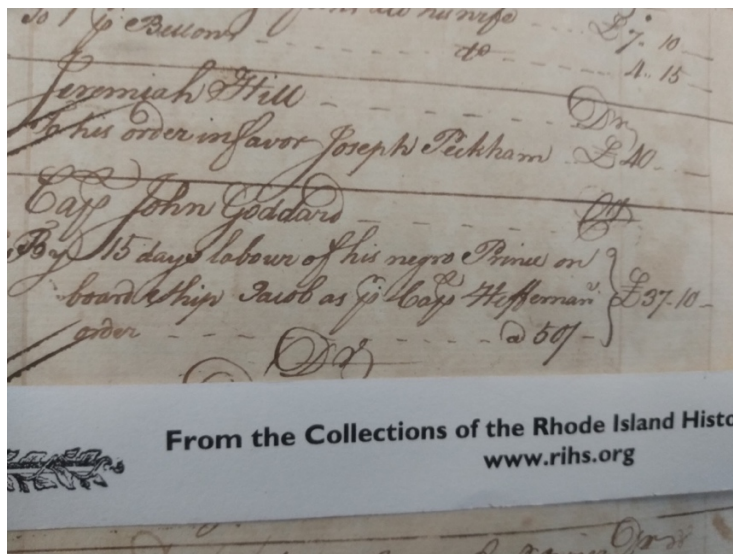 his wife £7. 10
Bessom do 4.. 15
Jeremiah Hill Dr
To his order in favor Joseph Peckham £40
Cap John Goddard Cr
By 15 days labour of his negro Prince on
board Ship Jacob as p Cap Heffernan £37.10
order @ 50/
Dr
From the Collections of the Rhode Island Histo
www.rihs.org